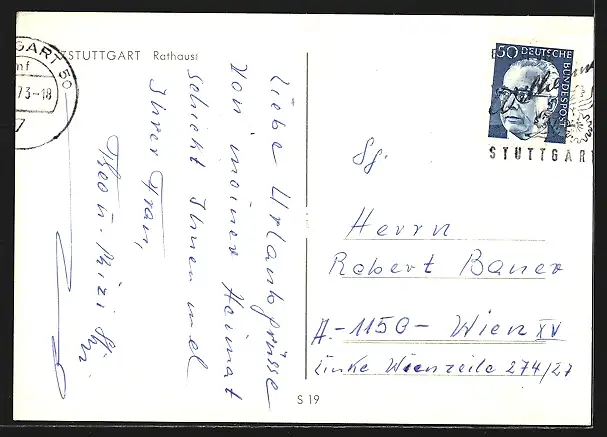 STUTTGART Rathaus
GART 50
73-18
50
DEUTSCHE
BUNDESPOST
STUTTGART
Liebe Urlaubsgrüsse
von meiner Heimat
schickt Ihnen und
Ihrer Frau,
Theo u. Mizi
Sg.
Herrn
Robert Bauer
A.-1150- Wien XV
Linke Wienzeile 274/27
S 19